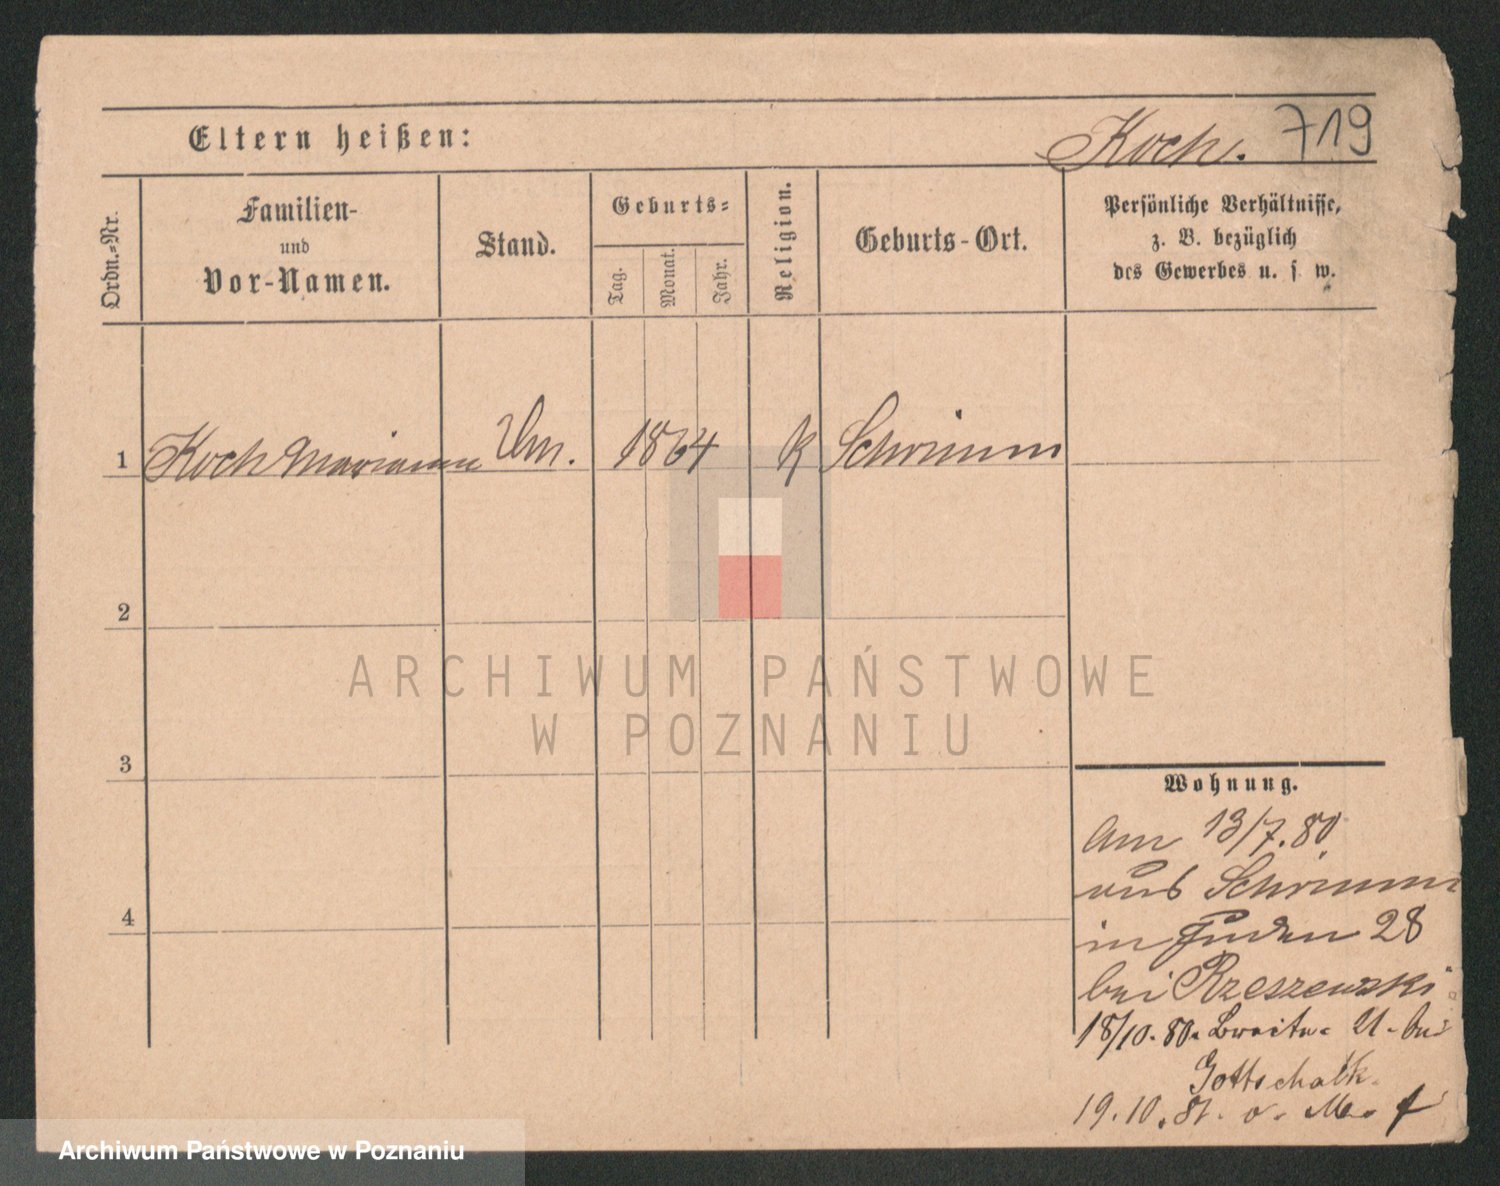 Eltern heißen:
Koch. 719
Ordn.-Nr.
Familien-
und
Vor-Namen.
Stand.
Geburts-
Tag.
Monat.
Jahr.
Religion.
Geburts-Ort.
Persönliche Verhältnisse,
z. B. bezüglich
des Gewerbes u. s w.
1 Koch Marianna 1864 k Schrimm
2
3
4
ARCHIWUM PAŃSTWOWE
W POZNANIU
Wohnung.
Am 13/7. 80
aus Schrimm
in Juden 28
bei Rzeszewski
18/10. 80. Breite- 21 - bei
Gottschalk.
19. 10. 81. o. M.
Archiwum Państwowe w Poznaniu